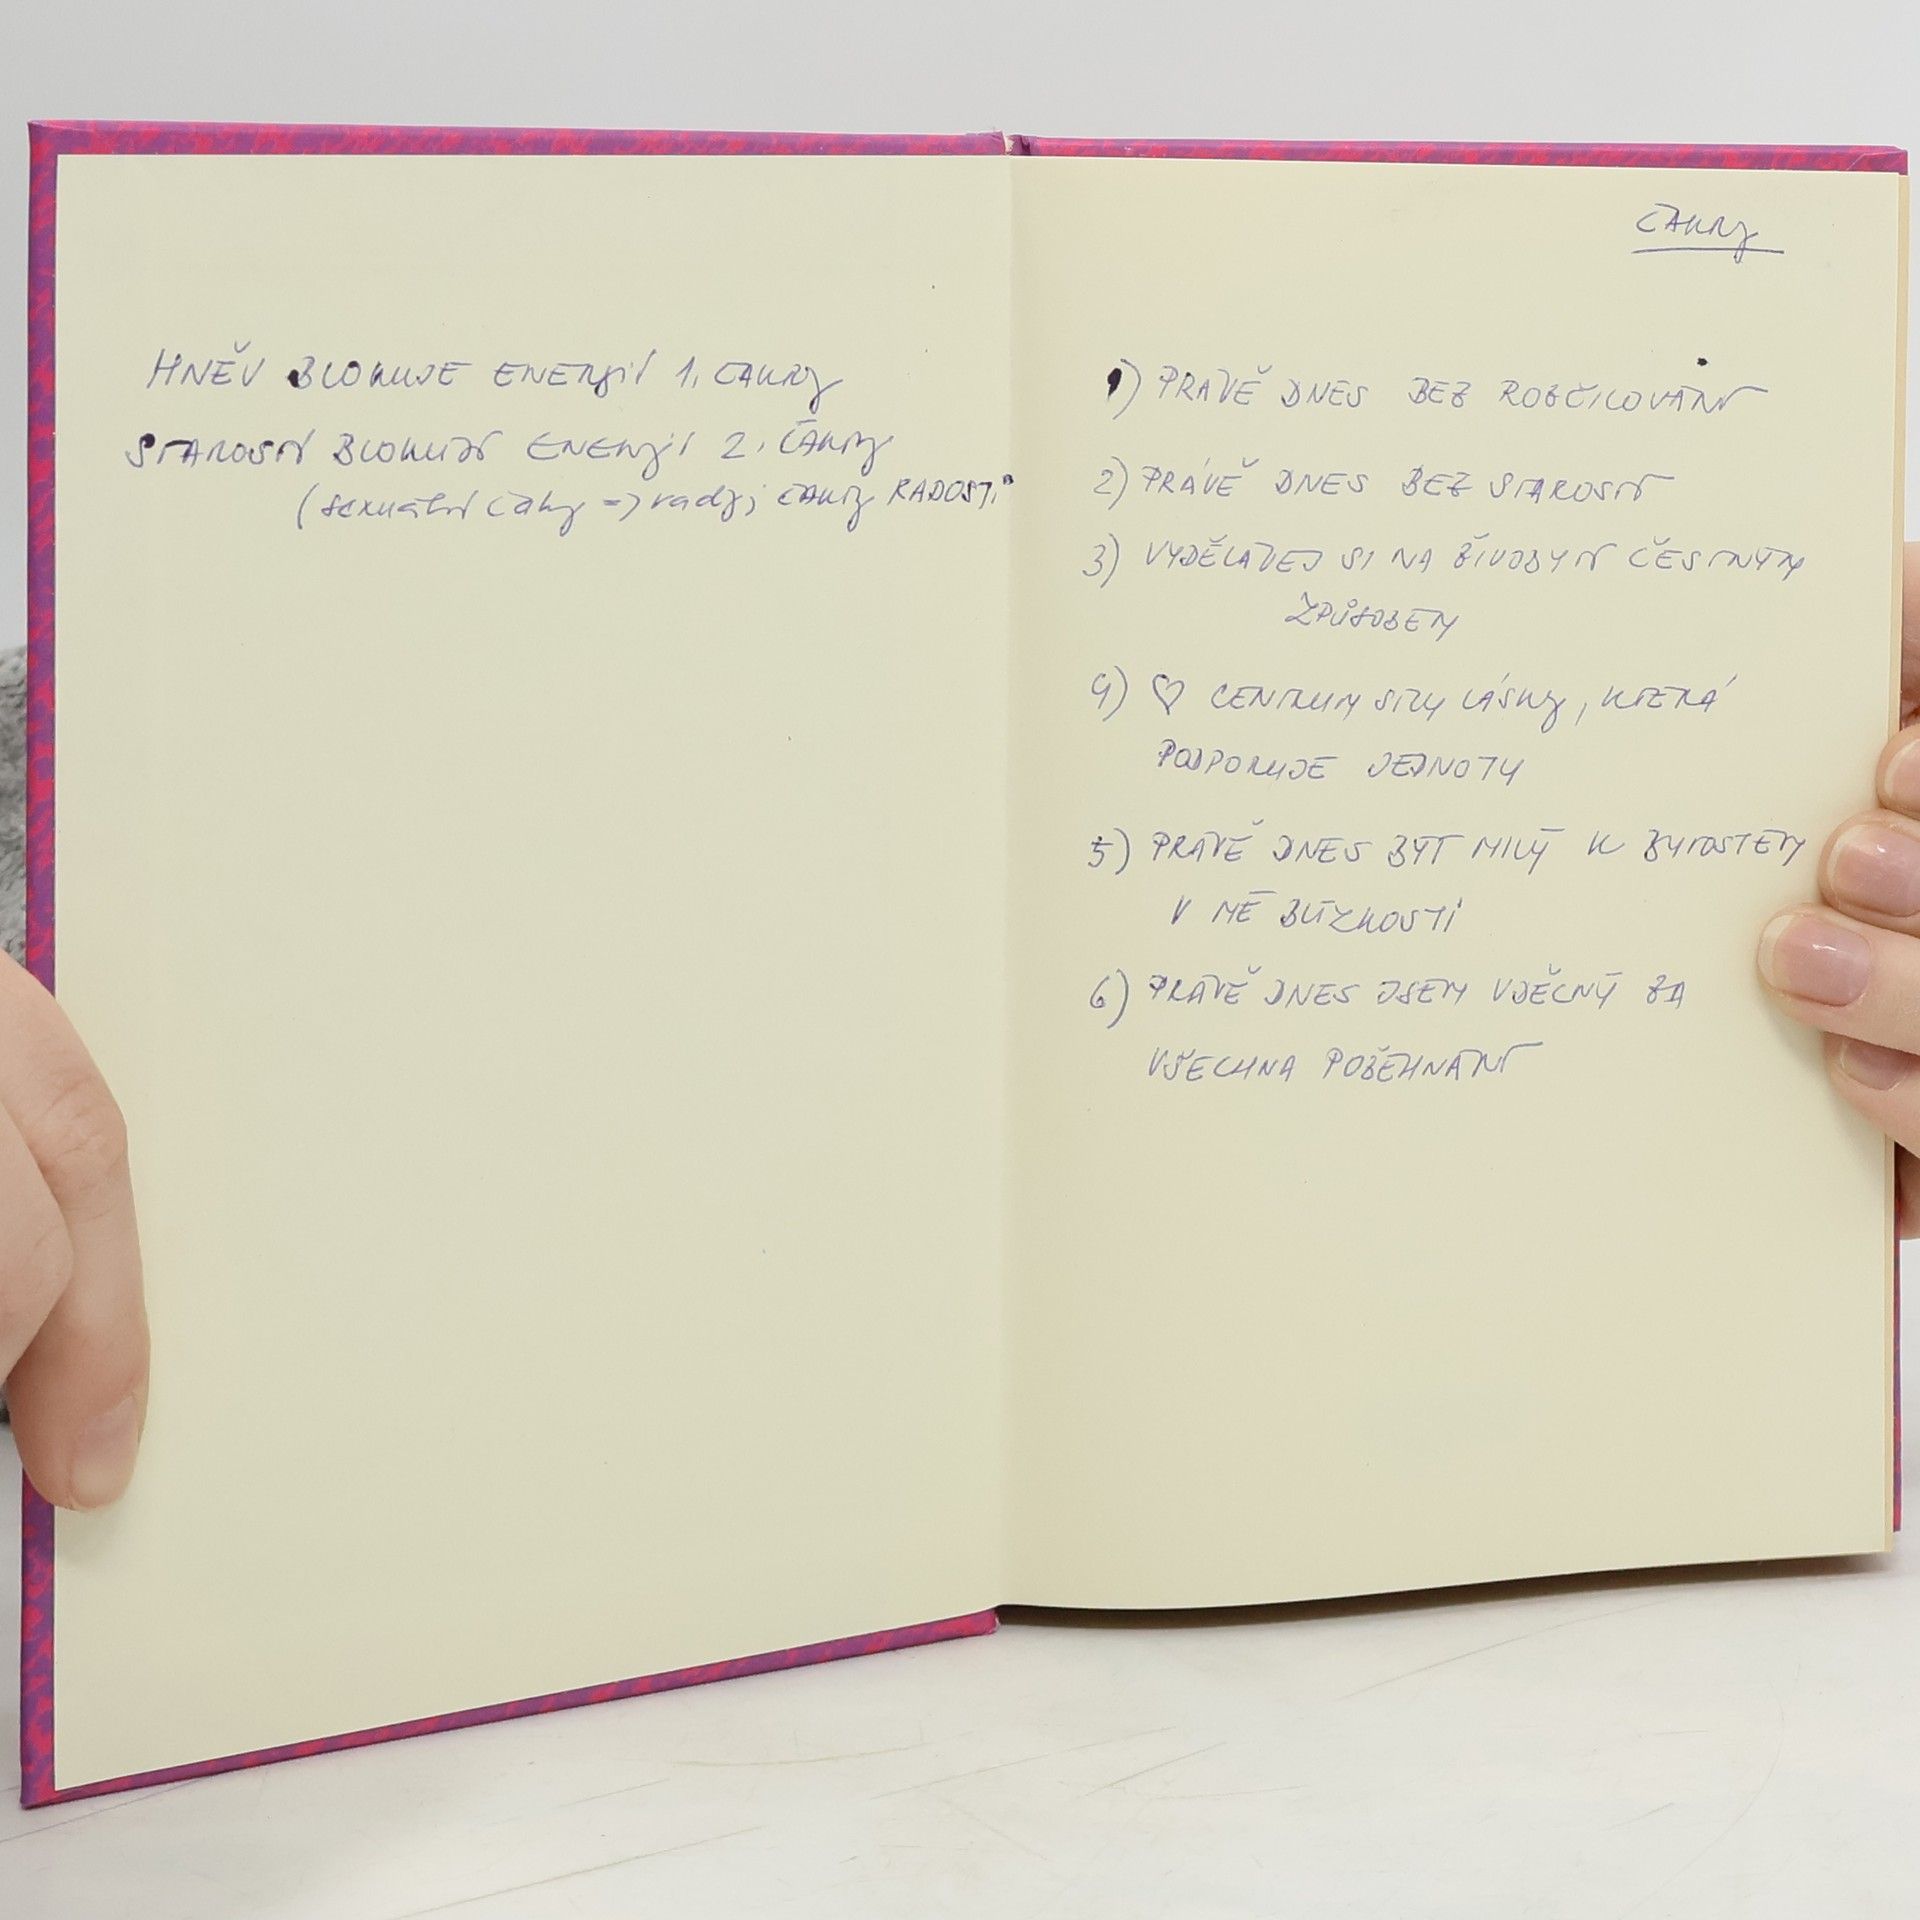 HNĚV BLOKUJE ENERGII 1. ČAKRY
STAROSTI BLOKUJÍ ENERGII 2. ČAKRY
(sexuální čakry => raději čakry RADOSTI"
ČAKRY
1) PRÁVĚ DNES BEZ ROZČILOVÁNÍ
2) PRÁVĚ DNES BEZ STAROSTÍ
3) VYDĚLÁVEJ SI NA ŽIVOBYTÍ ČESTNÝM
ZPŮSOBEM
4) ♡ CENTRUM SÍLY LÁSKY, KTERÁ
PODPORUJE JEDNOTY
5) PRÁVĚ DNES BÝT MILÝ K BYTOSTEM
V MÉ BLÍZKOSTI
6) PRÁVĚ DNES JSEM VDĚČNÝ ZA
VŠECHNA POŽEHNÁNÍ